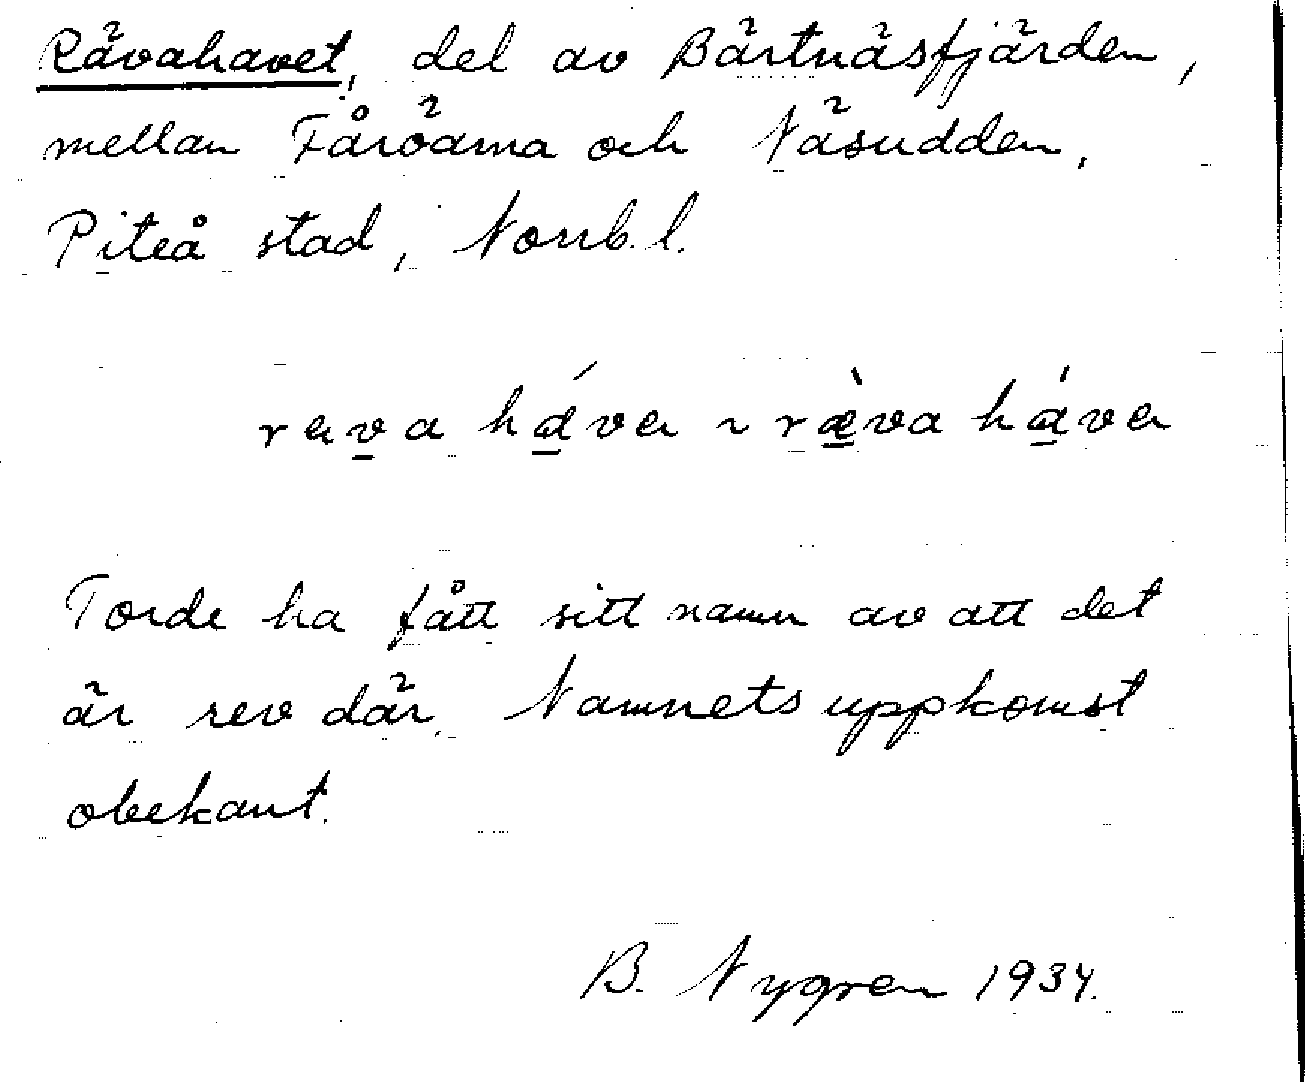 Rävahavet, del av Bärtnäsfjärden,
mellan Fåröarna och Näsudden,
Piteå stad, Norrb. l.
rava háva ~ ræ̀va háva
Torde ha fått sitt namn av att det
är rev där. Namnets uppkomst
obekant.
B. Nygren 1934.